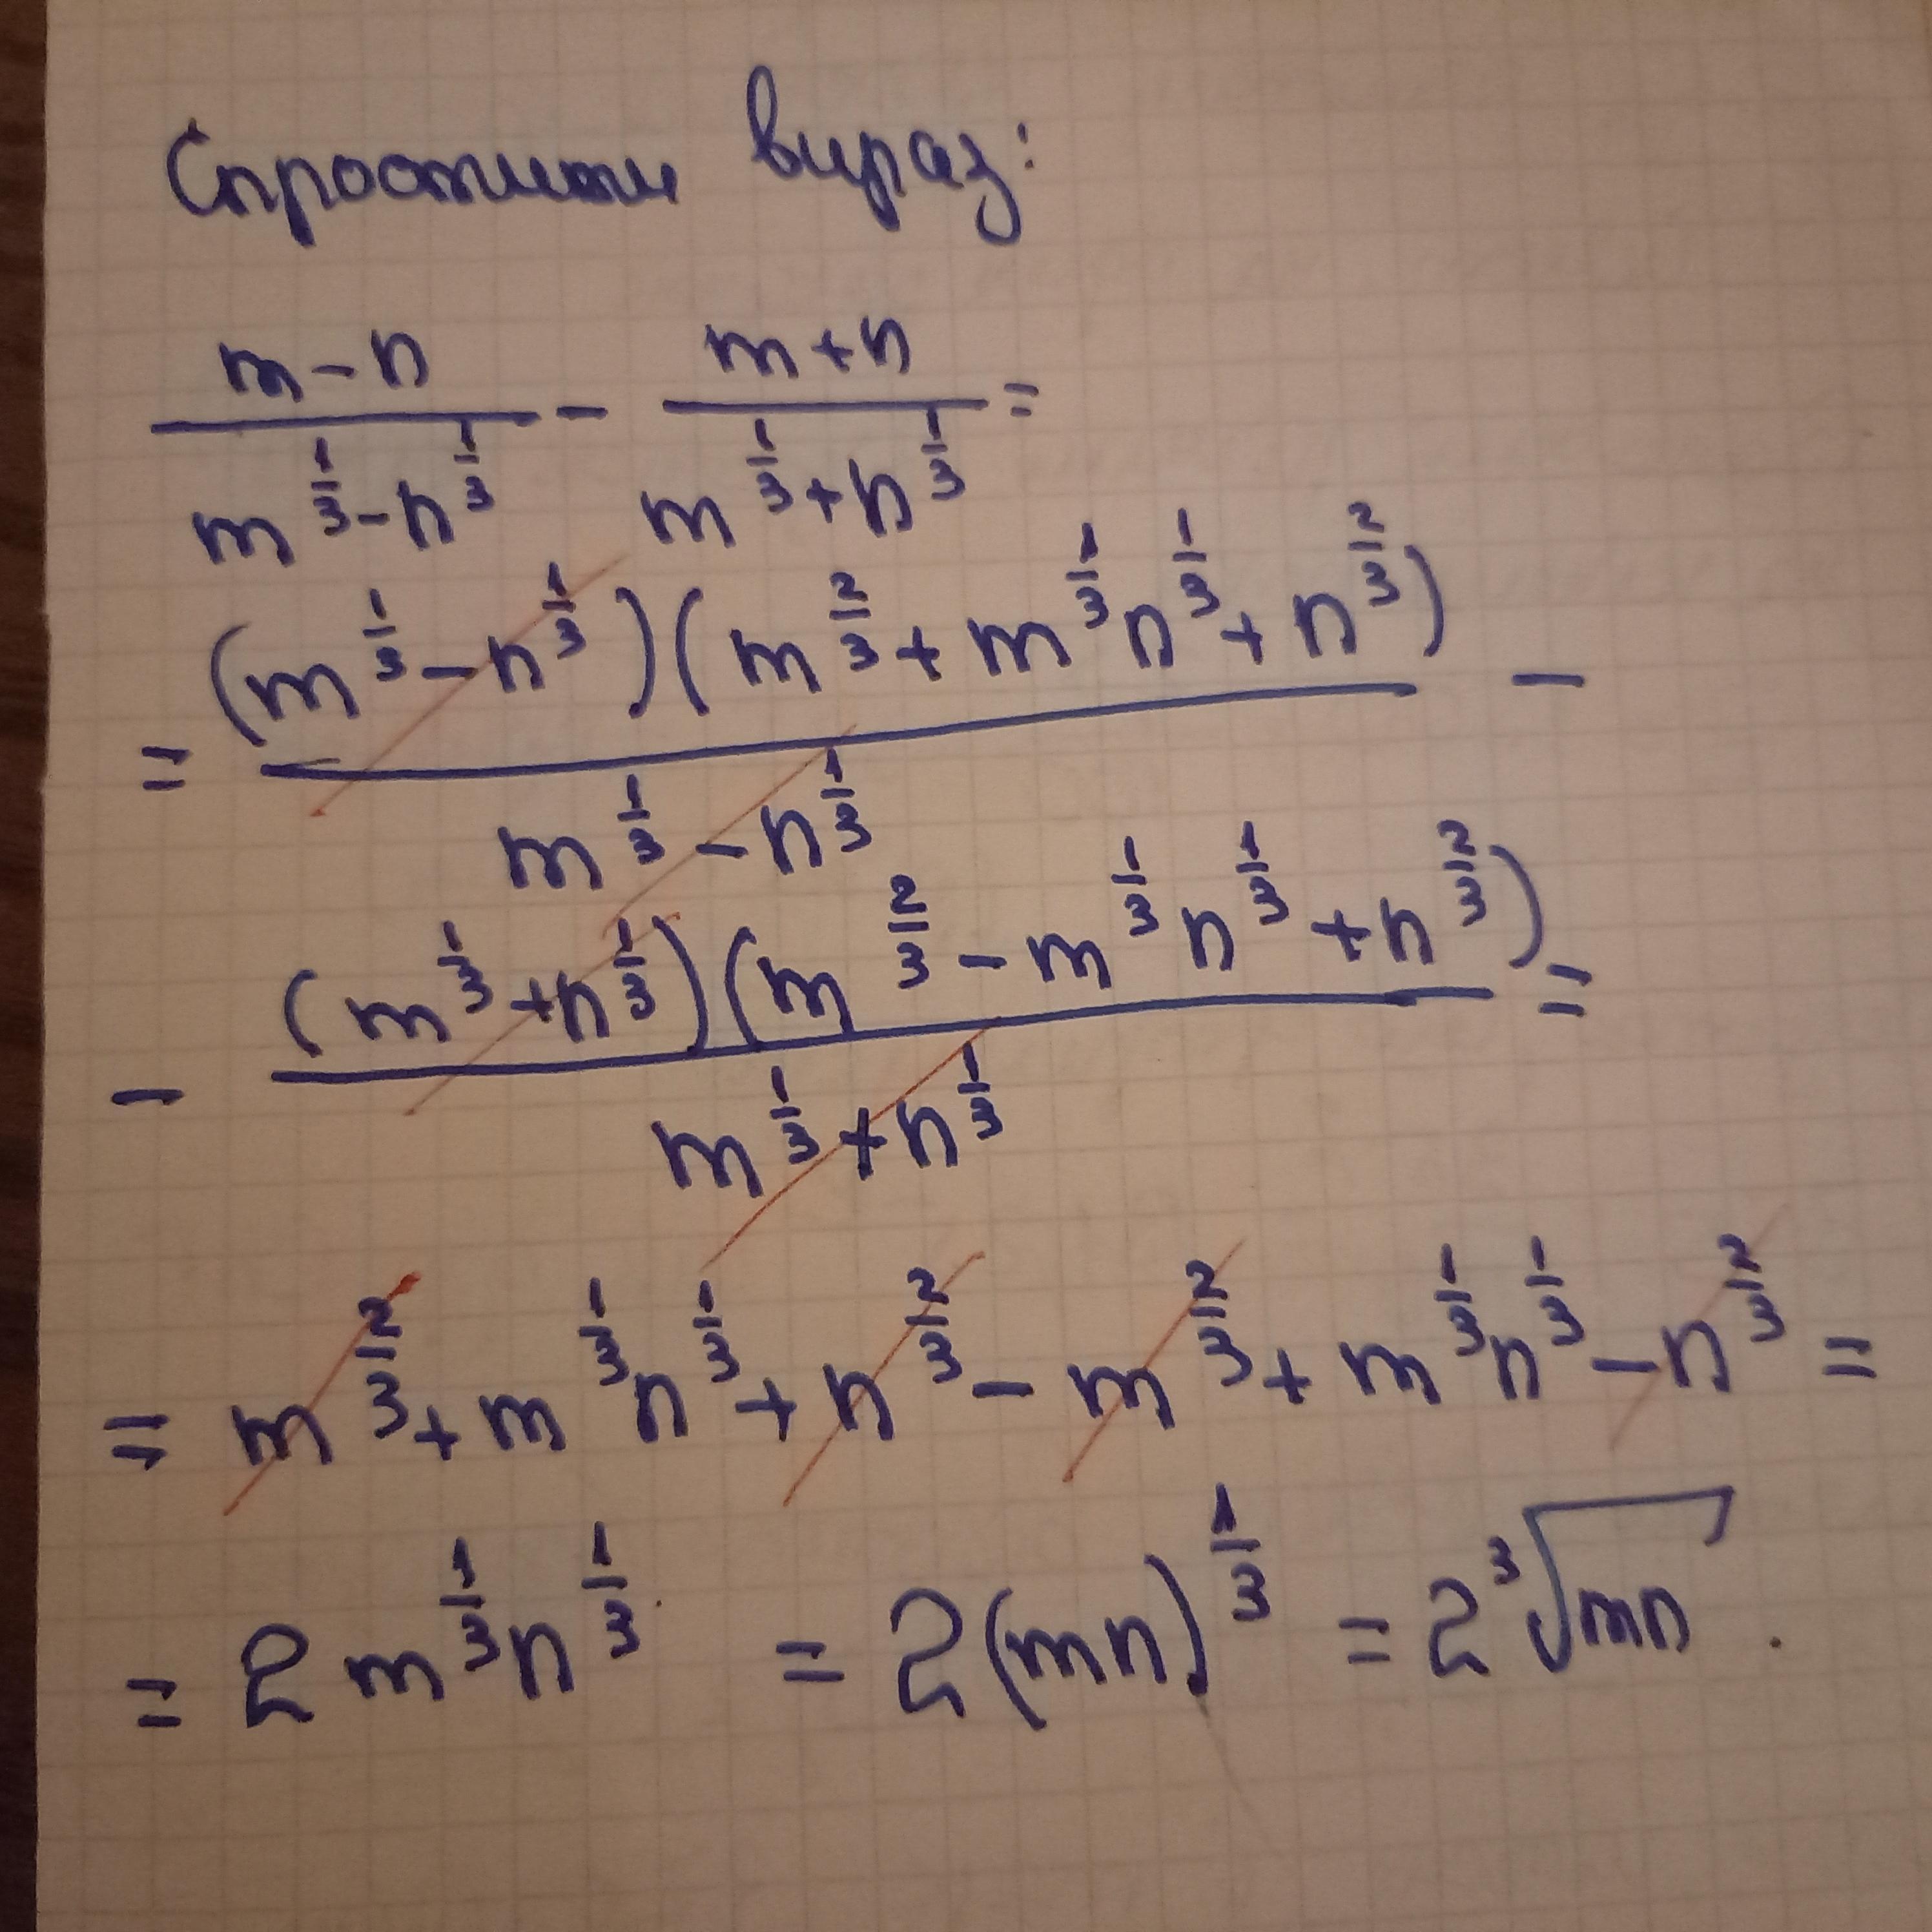 Спростити вираз:
\frac{m-n}{m^{\frac{1}{3}}-n^{\frac{1}{3}}} - \frac{m+n}{m^{\frac{1}{3}}+n^{\frac{1}{3}}} =
= \frac{(m^{\frac{1}{3}}-n^{\frac{1}{3}})(m^{\frac{2}{3}}+m^{\frac{1}{3}}n^{\frac{1}{3}}+n^{\frac{2}{3}})}{m^{\frac{1}{3}}-n^{\frac{1}{3}}} -
- \frac{(m^{\frac{1}{3}}+n^{\frac{1}{3}})(m^{\frac{2}{3}}-m^{\frac{1}{3}}n^{\frac{1}{3}}+n^{\frac{2}{3}})}{m^{\frac{1}{3}}+n^{\frac{1}{3}}} =
= m^{\frac{2}{3}}+m^{\frac{1}{3}}n^{\frac{1}{3}}+n^{\frac{2}{3}}-m^{\frac{2}{3}}+m^{\frac{1}{3}}n^{\frac{1}{3}}-n^{\frac{2}{3}} =
= 2m^{\frac{1}{3}}n^{\frac{1}{3}} = 2(mn)^{\frac{1}{3}} = 2\sqrt[3]{mn}.